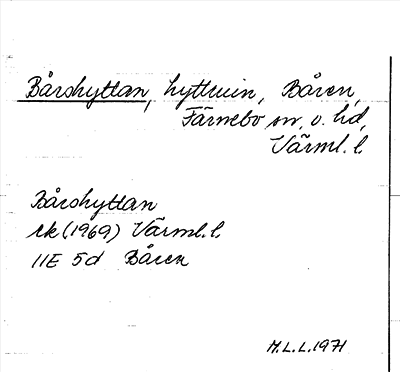 Bårshyttan, hyttruin, Båren,
Färnebo sn. o. hd,
Värml. l
Bårshyttan
rk (1969) Värml. l.
11E 5d Båren
M.L.L. 1971